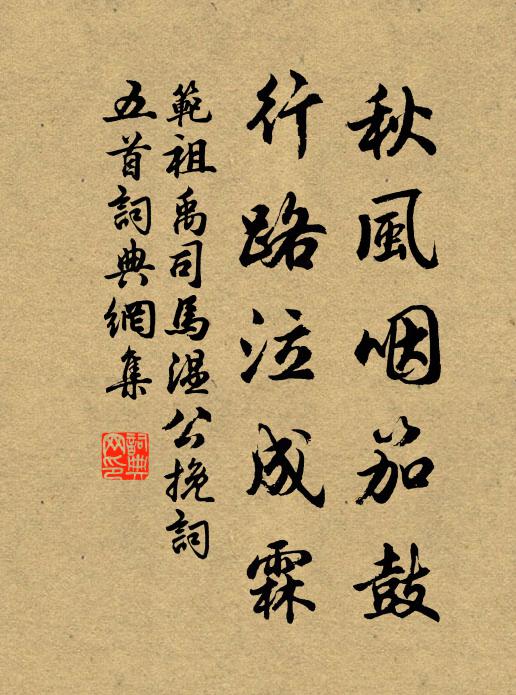 秋風咽笳鼓
行路泣成霖
範祖禹司馬溫公挽詞
五首詞典網集
詞典
网印